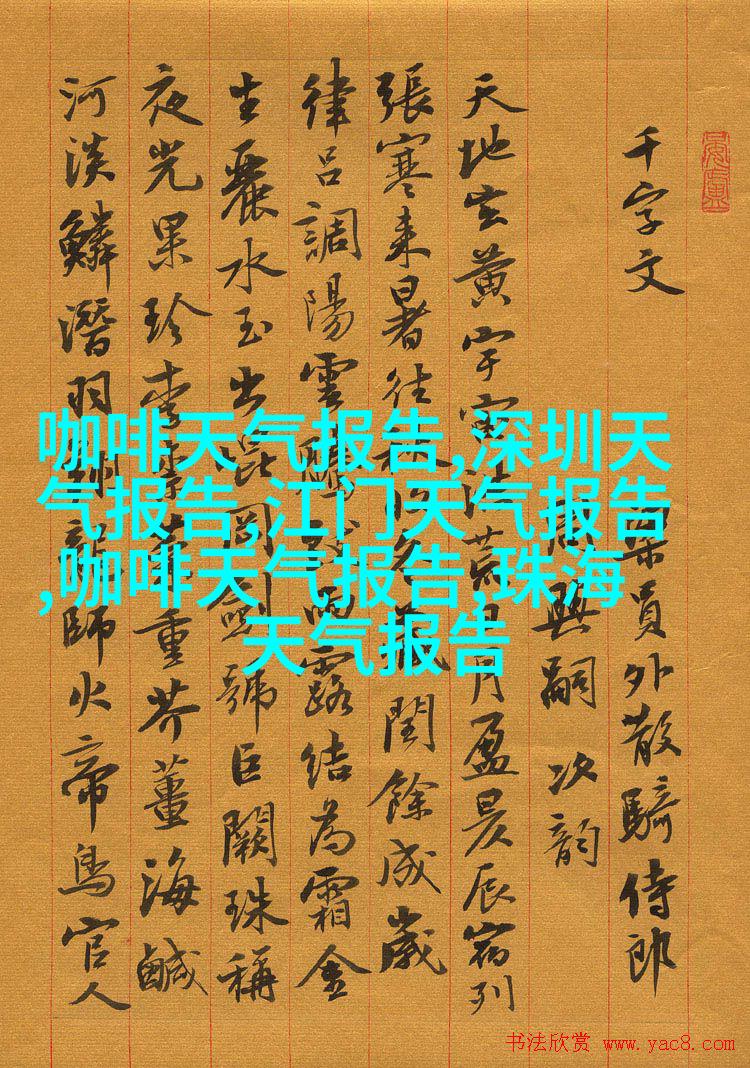 千字文
梁員外散騎侍郎
周興嗣次韵
天地玄黃宇宙洪荒日月盈昃辰宿列
張寒來暑往秋收冬藏閏餘成歲
律呂調陽雲騰致雨露結為霜金
生麗水玉出崐岡劍號巨闕珠稱
夜光果珍李柰菜重芥薑海鹹
河淡鱗潛羽翔龍師火帝鳥官人
咖啡天气报告,深圳天
气报告,江门天气报告
,咖啡天气报告,珠海
天气报告
书法欣赏 www.yac8.com